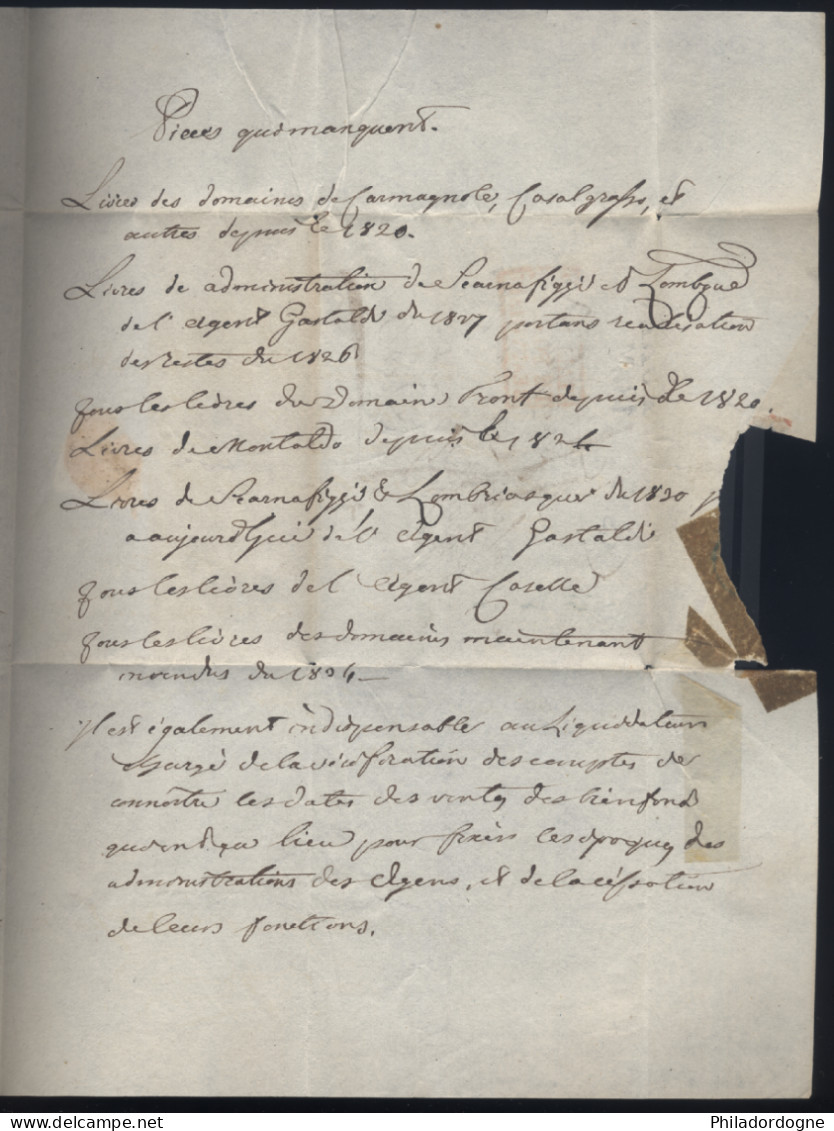 Pieces qui manquent.
Livres des domaines de Carmagnole, Casalgrasso, et
autres depuis le 1820.
Livres de administration de Scarnafiggi et Lombque
de l'Agent Gastaldi du 1827 portans realisation
des restes du 1826
Tous les livres du Domain Front depuis le 1820.
Livres de Montaldo depuis le 1824
Livres de Scarnafiggi & Lombriasque du 1820
a aujourd'hui de l'Agent Gastaldi
Tous les livres de l'Agent Caselle
Tous les livres des domaines maintenant
invendus du 1824
Il est également indispensable au Liquidateur
chargé de la vérification des comptes de
connoitre les dates des ventes des bienfond
qui ont eu lieu pour fixer les époques des
administrations des Agens, et de la cessation
de leurs fonctions.
Philadordogne